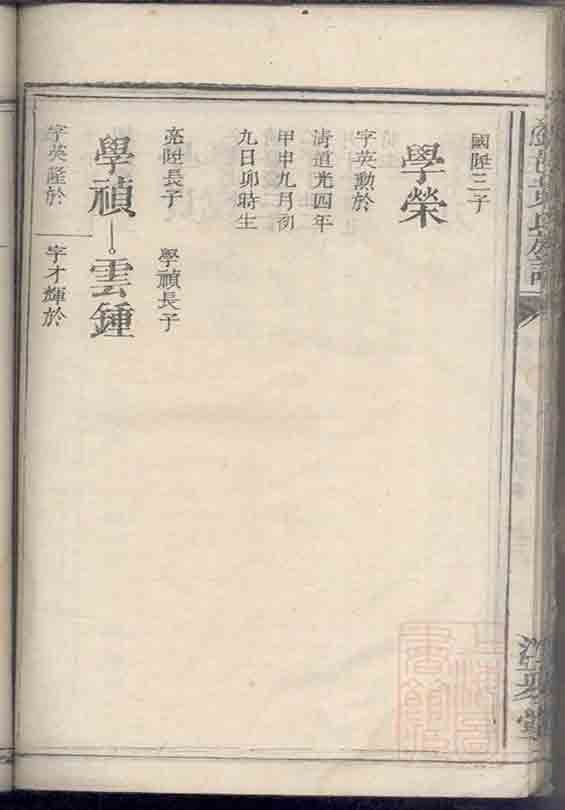 國陞三子
學榮
字英勳於
淸道光四年
甲申九月初
九日卯時生
亮陞長子
學禎
字英隆於
學禎長子
雲鍾
字才輝於